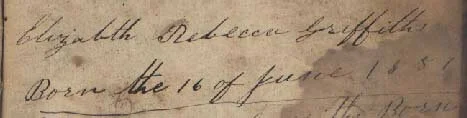 Elizabeth Rebecca Griffiths
Born the 16 of June 1831
Born